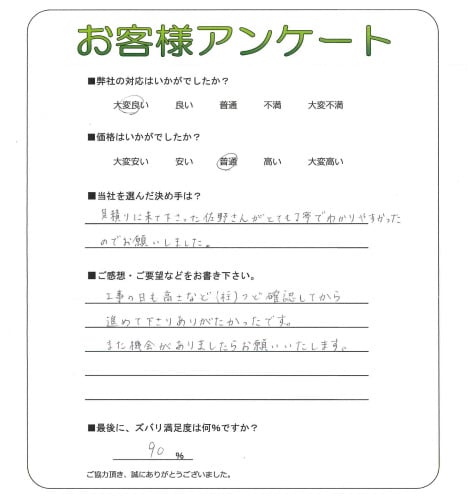 お客様アンケート
■弊社の対応はいかがでしたか？
大変良い 良い 普通 不満 大変不満
■価格はいかがでしたか？
大変安い 安い 普通 高い 大変高い
■当社を選んだ決め手は？
見積りに来て下さった佐野さんがとても丁寧でわかりやすかった
のでお願いしました。
■ご感想・ご要望などをお書き下さい。
工事の日も高さなど(柱)つど確認してから
進めて下さりありがたかったです。
また機会がありましたらお願いいたします。
■最後に、ズバリ満足度は何％ですか？
90 ％
ご協力頂き、誠にありがとうございました。